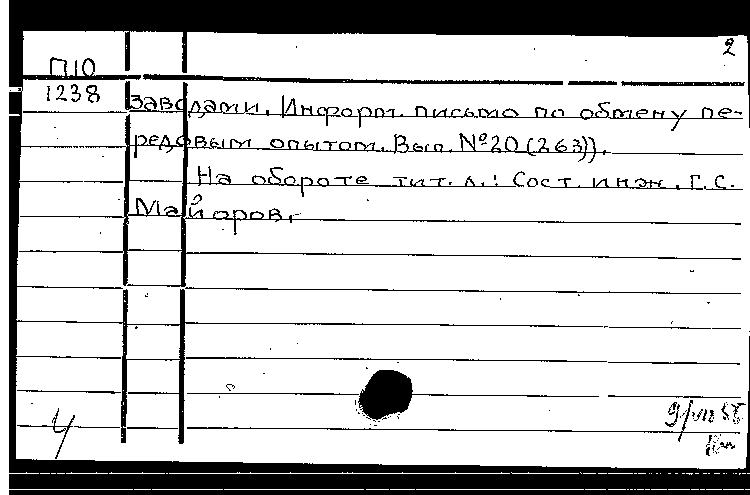 2
П10
1238
заводами. Информ. письмо по обмену пе-
редовым опытом. Вып. №20(263)).
На обороте тит. л.: Сост. инж. Г.С.
Майоров.